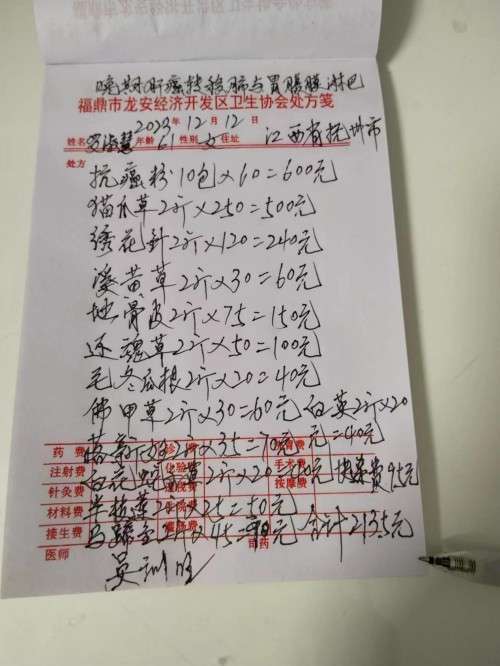 晚期肝癌转移肺与胃肠膜淋巴
福鼎市龙安经济开发区卫生协会处方笺
2023年12月12日
姓名 慧 年龄 61 性别 女 住址 江西省抚州市
处方
抗癌粉10包×60=600元
猫爪草2斤×250=500元
绣花針2斤×120=240元
溪苗草2斤×30=60元
地骨皮2斤×75=150元
还魂草2斤×50=100元
毛冬瓜根2斤×20=40元
佛甲草2斤×30=60元 白英2斤×20
2斤×35=70元 元=40元
药费
注射费 手术费
白花蛇舌草2斤×20=40元 快递费95元
针灸费 按摩费
材料费
半枝莲2斤×25=50元
接生费
马蹄金2斤×45=90元 合计2135元
医师 司药